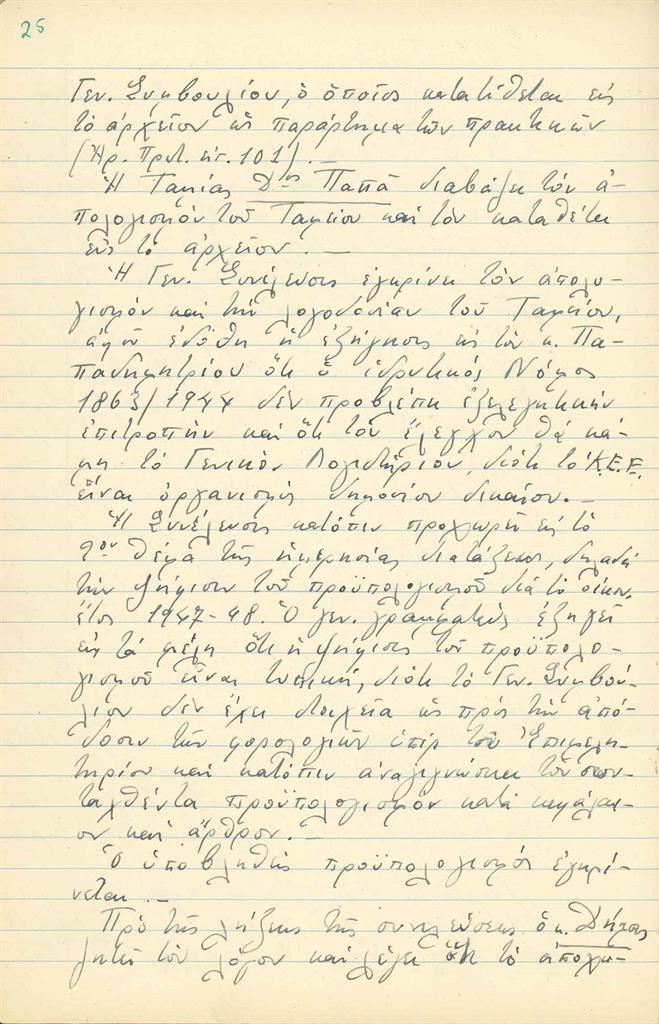 25
Γεν. Συμβουλίου, ὁ ὁποῖος κατατίθεται εἰς
τὸ ἀρχεῖον ὡς παράρτημα τῶν πρακτικῶν
(Ἀρ. Πρωτ. εἰσ. 101). —
Ἡ Ταμίας Δ/ὶς Παπᾶ διαβάζει τὸν ἀ-
πολογισμὸν τοῦ Ταμείου καὶ τὸν καταθέτει
εἰς τὸ ἀρχεῖον. —
Ἡ Γεν. Συνέλευσις ἐγκρίνει τὸν ἀπολο-
γισμὸν καὶ τὴν λογοδοσίαν τοῦ Ταμείου,
ἀφοῦ ἐδόθη ἡ ἐξήγησις εἰς τὸν κ. Πα-
παδημητρίου ὅτι ὁ ἱδρυτικὸς Νόμος
1863/1944 δὲν προβλέπει ἐξελεγκτικὴν
ἐπιτροπὴν καὶ ὅτι τὸν ἔλεγχον θὰ κά-
μῃ τὸ Γενικὸν Λογιστήριον, διότι τὸ Κ.Ε.Ε.
εἶναι ὀργανισμὸς δημοσίου δικαίου. —
Ἡ Συνέλευσις κατόπιν προχωρεῖ εἰς τὸ
2ον θέμα τῆς ἡμερησίας διατάξεως, δηλαδὴ
τὴν ψήφισιν τοῦ προϋπολογισμοῦ διὰ τὸ οἰκον.
ἔτος 1947-48. Ὁ γεν. γραμματεὺς ἐξηγεῖ
εἰς τὰ μέλη ὅτι ἡ ψήφισις τοῦ προϋπολο-
γισμοῦ εἶναι τυπική, διότι τὸ Γεν. Συμβού-
λιον δὲν ἔχει στοιχεῖα ὡς πρὸς τὴν ἀπό-
δοσιν τῶν φορολογιῶν ὑπὲρ τοῦ Ἐπιμελη-
τηρίου καὶ κατόπιν ἀναγιγνώσκει τὸν συν-
ταχθέντα προϋπολογισμὸν κατὰ κεφάλαι-
ον καὶ ἄρθρον. —
Ὁ ὑποβληθεὶς προϋπολογισμὸς ἐγκρί-
νεται. —
Πρὸ τῆς λήξεως τῆς συνελεύσεως ὁ κ. Δήμας
ζητεῖ τὸν λόγον καὶ λέγει ὅτι τὸ